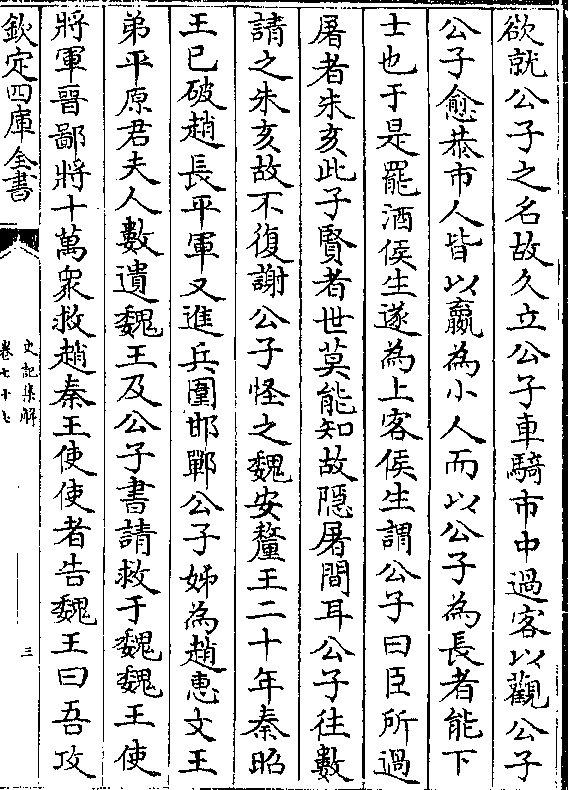 欲就公子之名故久立公子車騎市中過客以觀公子
公子愈恭市人皆以嬴為小人而以公子為長者能下
士也于是罷酒侯生遂為上客侯生謂公子曰臣所過
屠者朱亥此子賢者世莫能知故隱屠間耳公子往數
請之朱亥故不復謝公子怪之魏安釐王二十年秦昭
王已破趙長平軍又進兵圍邯鄲公子姊為趙惠文王
弟平原君夫人數遺魏王及公子書請救于魏魏王使
將軍晉鄙將十萬衆救趙秦王使使者告魏王曰吾攻
欽定四庫全書
史記集解
卷七十七
三